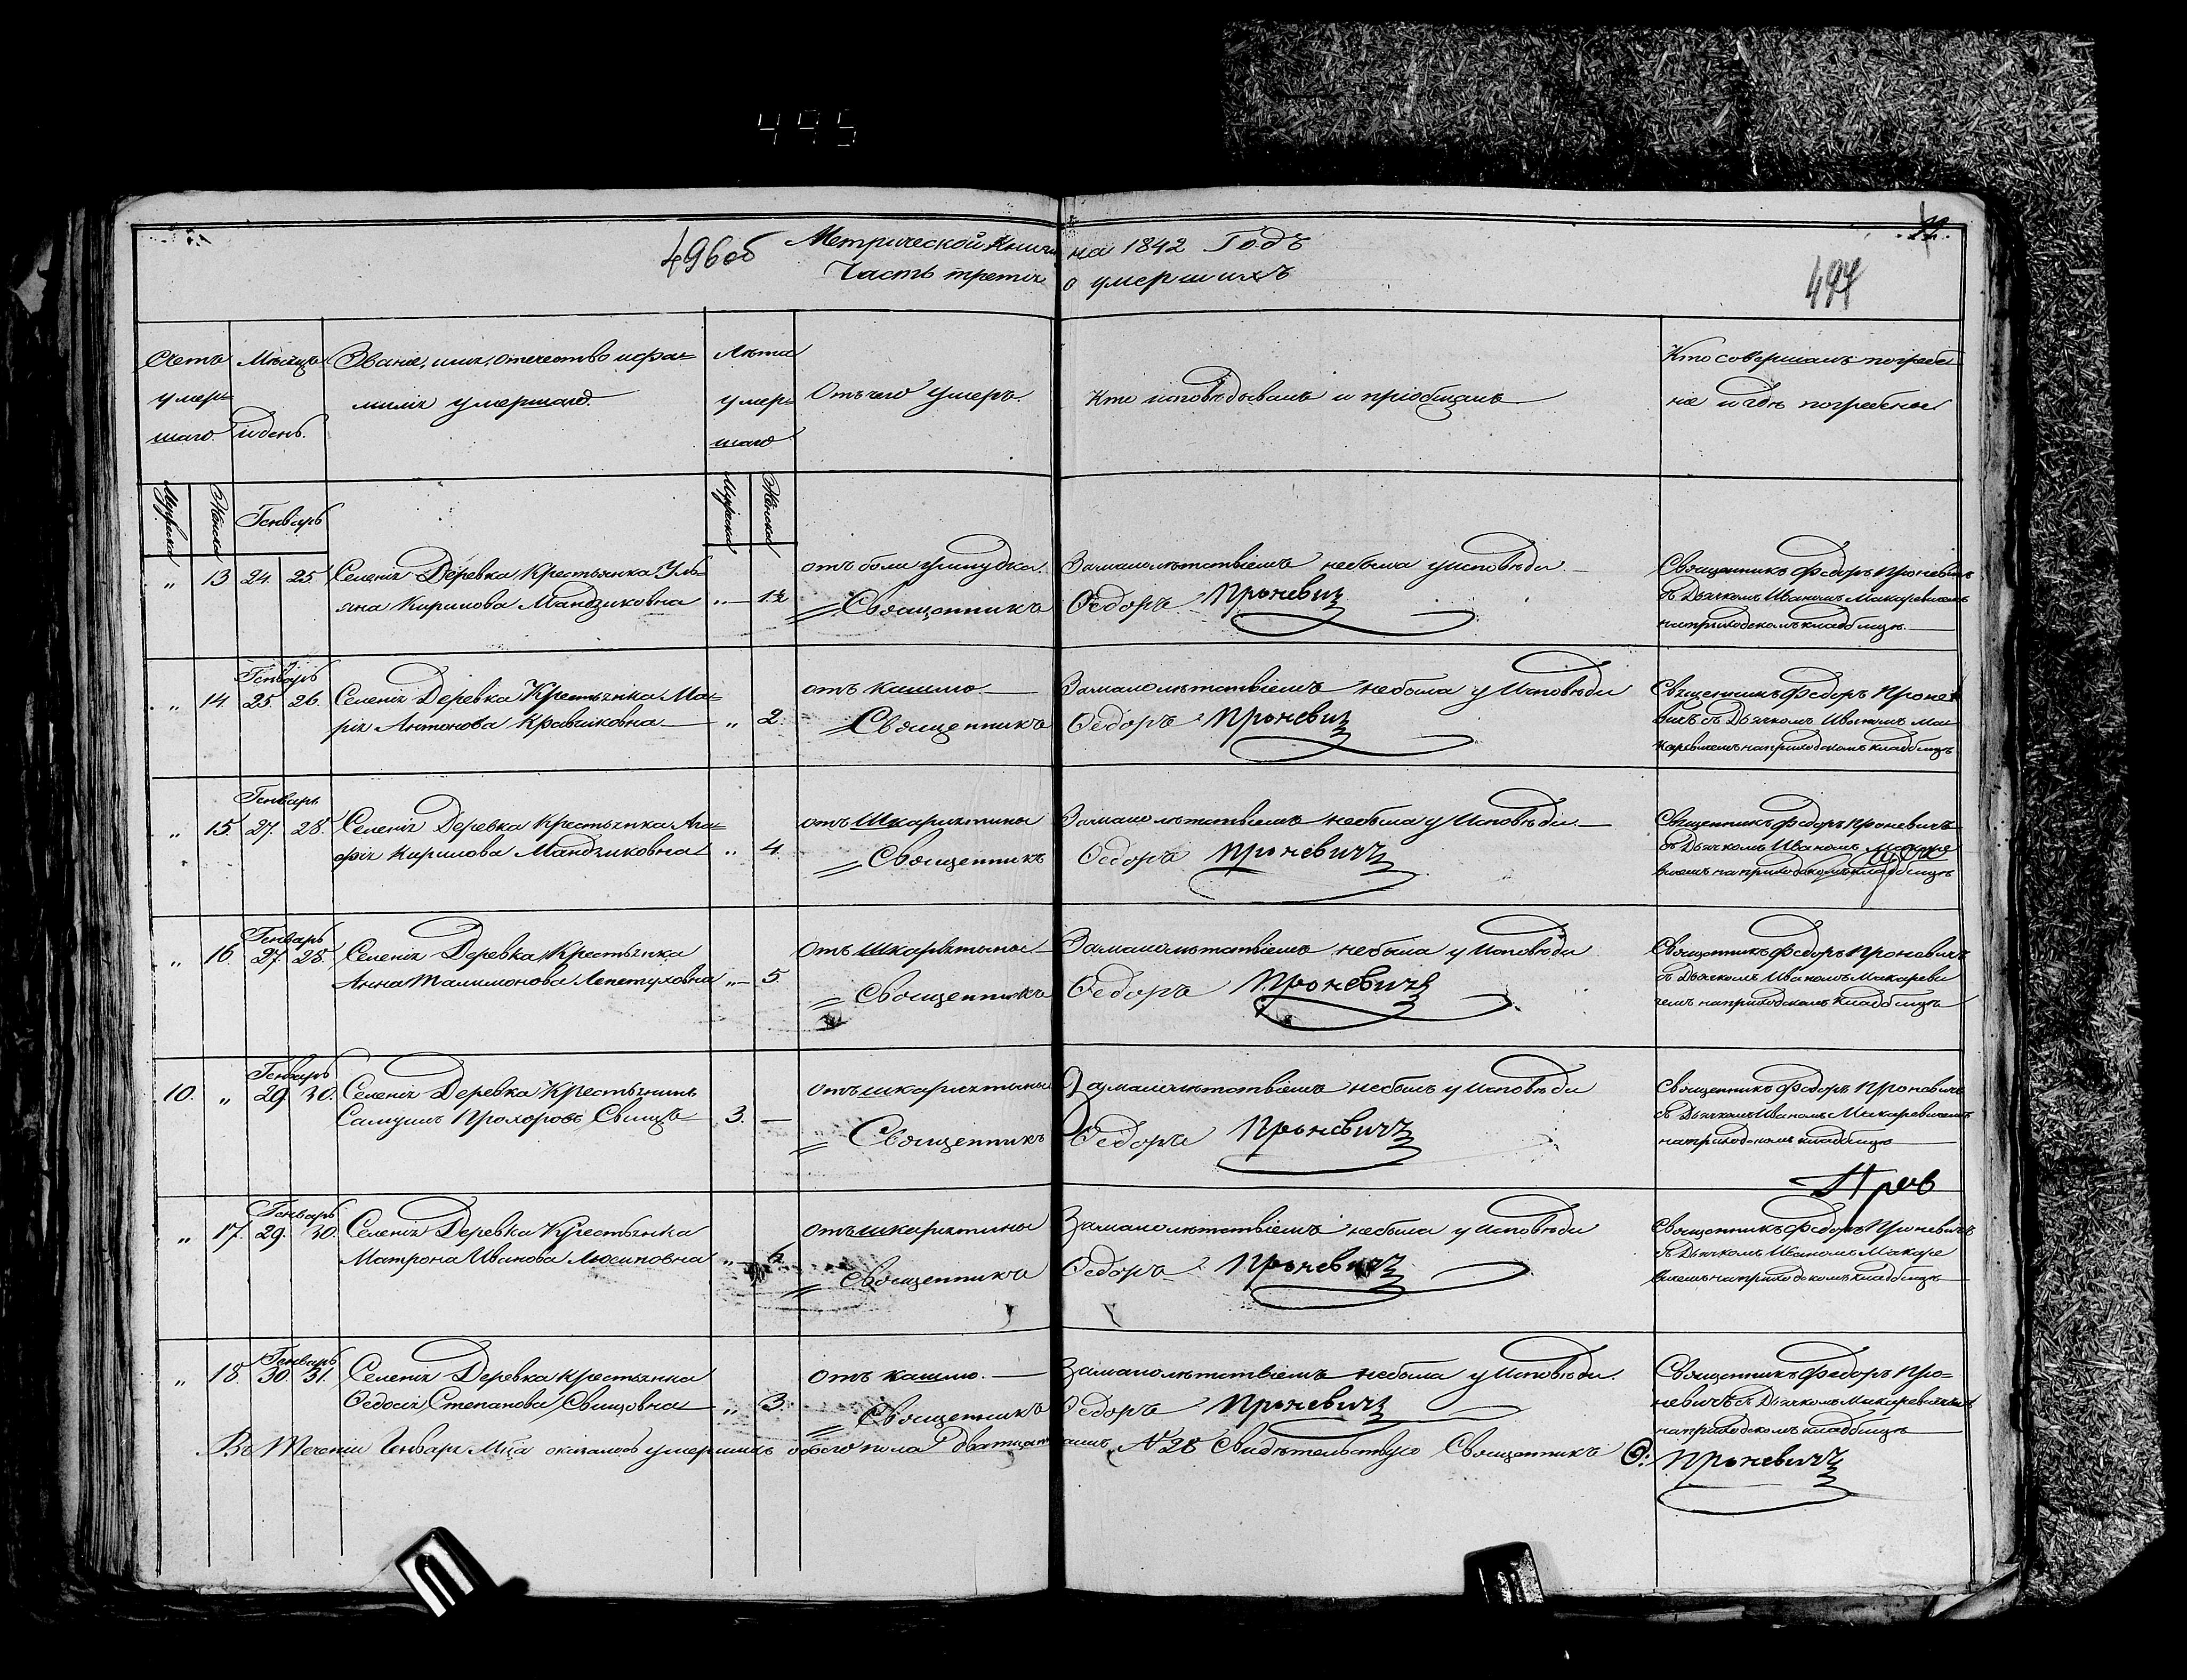 495
496об Метрической книги на 1842 Годъ
Часть третія о умершихъ
497
Счетъ умер=шаго
Мужеска
Женска
Мѣсяцъ и день.
Званіе, имя, отечество и фа=
милія умершаго.
Лѣта умер=шаго
Мужеска
Женска
Отъ чего умеръ.
Кто исповѣдывалъ и пріобщалъ
Кто совершалъ погребе
ніе и гдѣ погребены
Генварь
„ 13 24 25 Селенія Деревка Крестьянка Уль=
яна Кирилова Мандзиковна „ 12
отъ боли у Заналолѣтствіемъ небыла у исповѣди
Священникъ Федоръ Проневичъ
Священникъ Федоръ Проневичъ
съ Дьячкомъ Иваномъ Макаревичемъ
на приходскомъ кладбищѣ
Генварь
„ 14 25 26 Селенія Деревка Крестьянка Ма=
рія Антонова Кравчиковна „ 2
отъ кашлю Замалолѣтствіемъ небыла у Исповѣди
Священникъ Федоръ Проневичъ
Священникъ Федоръ Проне
вичъ съ Дьячкомъ Иваномъ Ма
каревичемъ на приходскомъ кладбищѣ
Генварь
„ 15 27 28 Селенія Деревка Крестьянка Ага=
фія Кирилова Мандзиковна „ 4
отъ Шкарлятины Замалолѣтствіемъ небыла у Исповѣди
Священникъ Федоръ Проневичъ
Священникъ Федоръ Проневичъ
съ Дьячкомъ Иваномъ Макаре
вичемъ на приходскомъ кладбищѣ
Генварь
„ 16 27 28 Селенія Деревка Крестьянка
Анна Талимонова Лепетуховна „ 5
отъ шкарлятыны Замалолѣтствіемъ небыла у Исповѣди
Священникъ Федоръ Проневичъ
Священникъ Федоръ Проневичъ
съ Дьячкомъ Иваномъ Макареви
чемъ на приходскомъ кладбищѣ
Генварь
10. „ 29. 30. Селенія Деревка Крестьянинъ
Самуилъ Прохоровъ Свищъ 3. —
отъ шкарлятыны Замалолѣтствіемъ небылъ у Исповѣди
Священникъ Федоръ Проневичъ
Священникъ Федоръ Проневичъ
съ Дьячкомъ Иваномъ Макаревичемъ
на приходскомъ кладбищѣ
Генварь
„ 17. 29. 30. Селенія Деревка Крестьянка
Матрона Иванова Люсиповна „
отъ шкарлятины Замалолѣтствіемъ небыла у Исповѣди
Священникъ Федоръ Проневичъ
Священникъ Федоръ Проневичъ
съ Дьячкомъ Иваномъ Макаре
вичемъ на приходскомъ кладбищѣ
Генварь
„ 18 30. 31. Селенія Деревка крестьянка
Федосія Степанова Свищовна „ 3.
отъ кашлю. Замалолѣтствіемъ небыла у Исповѣди.
Священникъ Федоръ Проневичъ
Священникъ Федоръ Про=
невичъ съ Дьячкомъ Макаревичемъ
на приходскомъ кладбищѣ
Въ Теченіи Генваря Мца оказалось умершихъ обоего пола № 28 Свидѣтельствую Священникъ Ѳ: Проневичъ